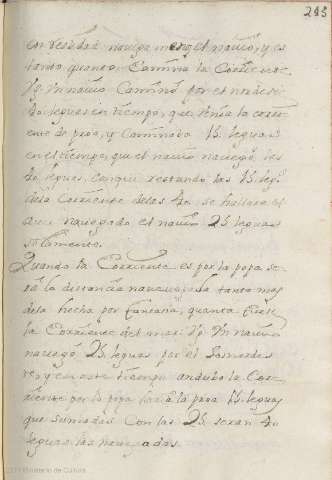 243
en verdad navega menos el navio, y es
tanto quanto Camina la Corriente.
Vg. Un navio Caminò por el nordeste
40 leguas en tiempo, que tenia la corri
ente de proa, y Caminaba 15 leguas
en el tiempo, que el navio navegò, las
40 leguas, conque restando las 15 leg.s
dela Corriente delas 40, se hallarà el
aver navegado el navio 25 leguas
solamente.
Quando la Corriente es por la popa se
rà la distancia navegada tanto mas
dela hecha por fantasia, quanta fuere
la Corriente del mar. Vg. Un navio
navegò 25 leguas por el Sornordes
te, y en este tiempo andubo la Cor
riente por la popa hacia la proa 15 leguas
que sumadas Con las 25 seran 40
leguas las navegadas.
Ministerio de Cultura